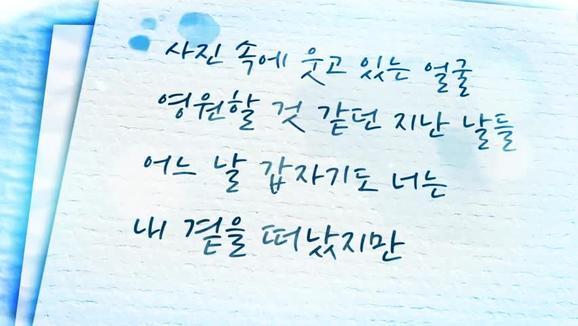 사진 속에 웃고 있는 얼굴
영원할 것 같던 지난 날들
어느 날 갑자기도 너는
내 곁을 떠났지만